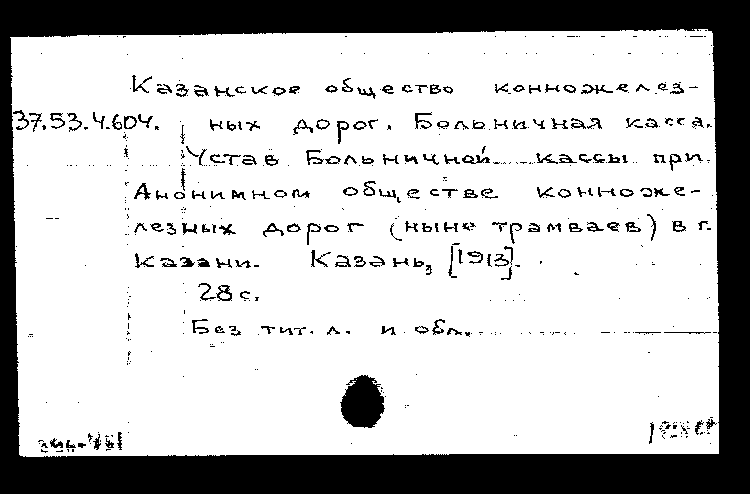 Казанское общество конножелез-
37.53.4.604. ных дорог. Больничная касса.
Устав Больничной кассы при
Анонимном обществе конноже-
лезных дорог (ныне трамваев) в г.
Казани. Казань, [1913].
28 с.
Без тит. л. и обл.